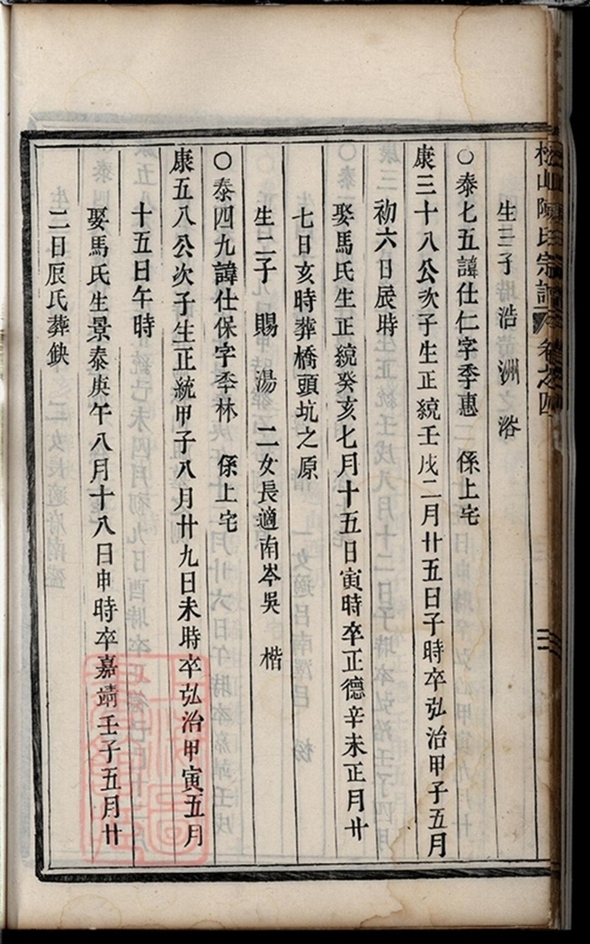 松山陳氏宗譜 卷之四
生三子 浩 洲 浴
○泰七五諱仕仁字季惠 係上宅
康三十八公次子生正統壬戌二月廿五日子時卒弘治甲子五月
初六日辰時
娶馬氏生正統癸亥七月十五日寅時卒正德辛未正月廿
七日亥時葬橋頭坑之原
生二子 賜 湯 二女長適南岑吳 楷
○泰四九諱仕保字季林 係上宅
康五八公次子生正統甲子八月廿九日未時卒弘治甲寅五月
十五日午時
娶馬氏生景泰庚午八月十八日申時卒嘉靖壬子五月廿
二日辰氏葬缺